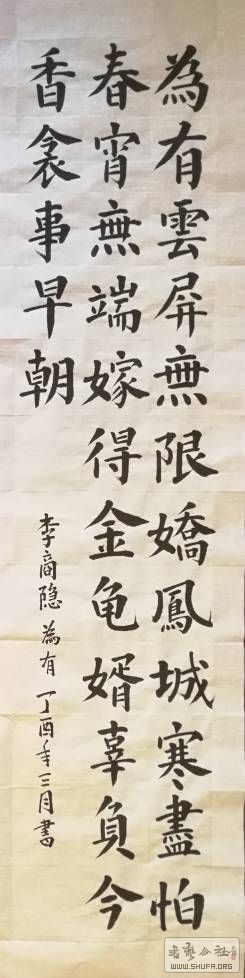 為有雲屏無限嬌鳳城寒盡怕
春宵無端嫁得金龟婿辜負今
香衾事早朝
李商隐 為有 丁酉年三月書
书艺公社
WWW.SHUFA.ORG